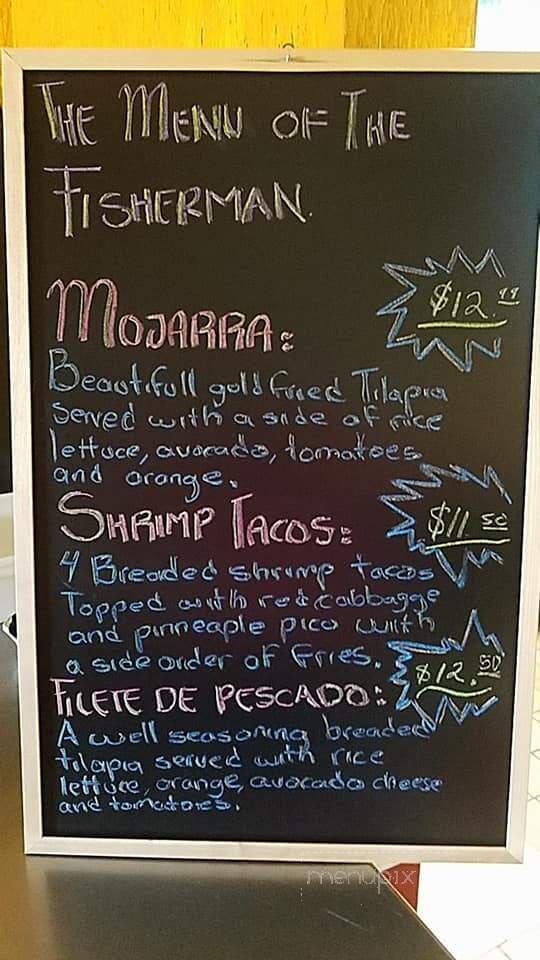 THE MENU OF THE
FISHERMAN.
MOJARRA:
$12.99
Beautifull gold fried Tilapia
served with a side of rice
lettuce, avocado, tomatoes
and orange.
SHRIMP TACOS:
$11.50
4 Breaded shrimp tacos
Topped with red cabbagge
and pinneaple pico with
a side order of fries.
$12.50
FILETE DE PESCADO:
A well seasoning breaded
tilapia served with rice
lettuce, orange, avocado cheese
and tomatoes.
menupix